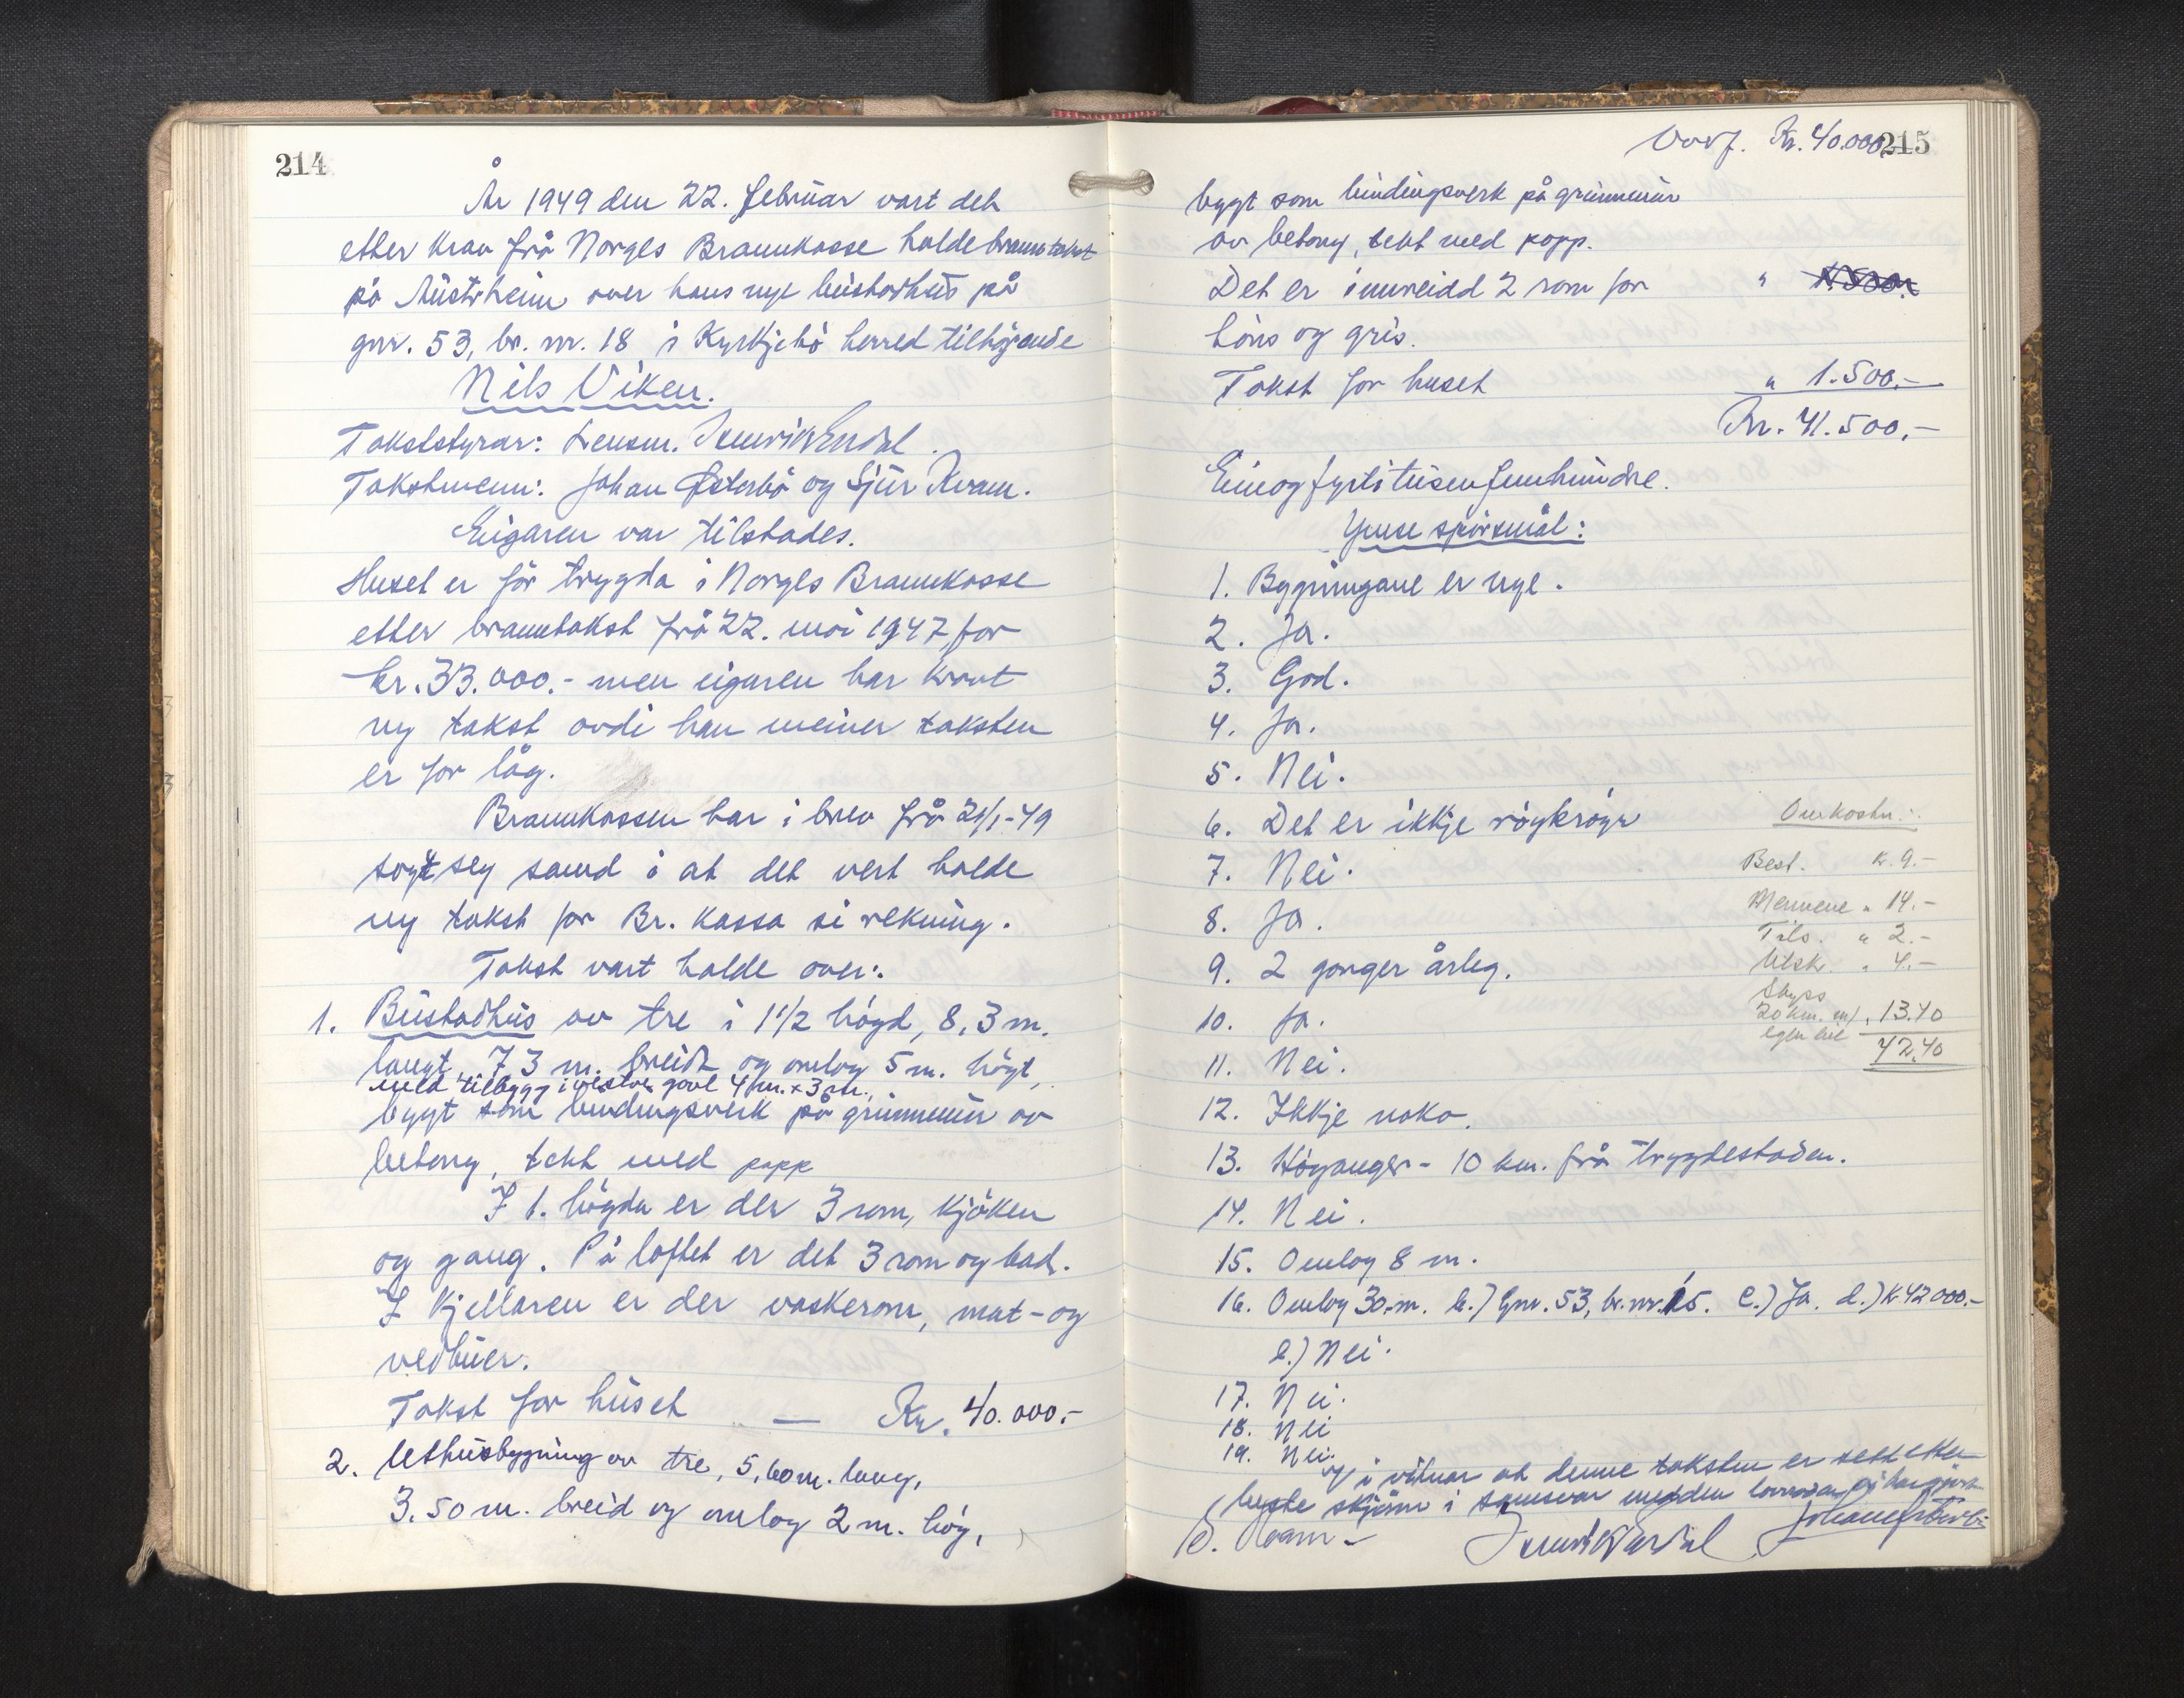 214
År 1949 den 22. februar vart det
etter krav frå Norges Brannkasse halde branntakst
på Austrheim over hans nye bustadhus på
gnr. 53, br. nr. 18 i Kyrkjebö herred tilhøyrande
Nils Viken.
Takststyrar: Lensm. Henrik Erdal.
Takstmenn: Johan Østerbö og Sjur Kvam.
Eigaren var tilstades.
Huset er för trygda i Norges Brannkasse
etter branntakst frå 22. mai 1947 for
kr. 33.000.- men eigaren har kravt
ny takst avdi han meiner taksten
er for låg.
Brannkassen har i brev frå 21/1-49
sagt seg samd i at det vert halde
ny takst for Br. kassa si rekning.
Takst vart halde over:
1. Bustadhus av tre i 1 1/2 högd, 8,3 m.
langt, 7,3 m. breidt og omlag 5 m. högt,
med tilbygg i vestre gavl 4 m. x 3 m.,
bygt som bindingsverk på grunnmur av
betong, tekt med papp
I 1. högda er der 3 rom, kjöken
og gang. På loftet er det 3 rom og bad.
I kjellaren er der vaskerom, mat- og
vedbuer.
Takst for huset — Kr. 40.000.-
2. Uthusbygning av tre, 5,60 m. lang,
3.50 m. breid og omlag 2 m. hög,
Overf. Kr. 40.000.-
215
bygt som bindingsverk på grunnmur
av betong, tekt med papp.
Det er innreidd 2 rom for " 1.500.-
höns og gris.
Takst for huset " 1.500.-
Kr. 41.500.-
Einogfyrtitusenfemhundre.
Ymse spörsmål:
1. Bygningane er nye.
2. Ja.
3. God.
4. Ja.
5. Nei.
6. Det er ikkje röykröyr
7. Nei.
8. Ja.
9. 2 gonger årleg.
10. Ja.
11. Nei.
12. Ikkje noko.
13. Höyanger - 10 km. frå trygdestaden.
14. Nei.
15. Omlag 8 m.
16. Omlag 30 m. b.) Gnr. 53, br. nr. 15. c.) Ja. d.) K 42000.-
e.) Nei.
17. Nei.
18. Nei
19. Nei.
Omkostn.:
Best. kr. 9.-
Mennene " 14.-
Tils. " 2.-
Utskr. " 4.-
Skyss
20 km. m/ " 13.40
egen bil
42.40
Vi vitnar at denne taksten er sett etter
beste skjönn i samsvar med den
S. Kvam
Henrik Erdal
Johan Østerbö